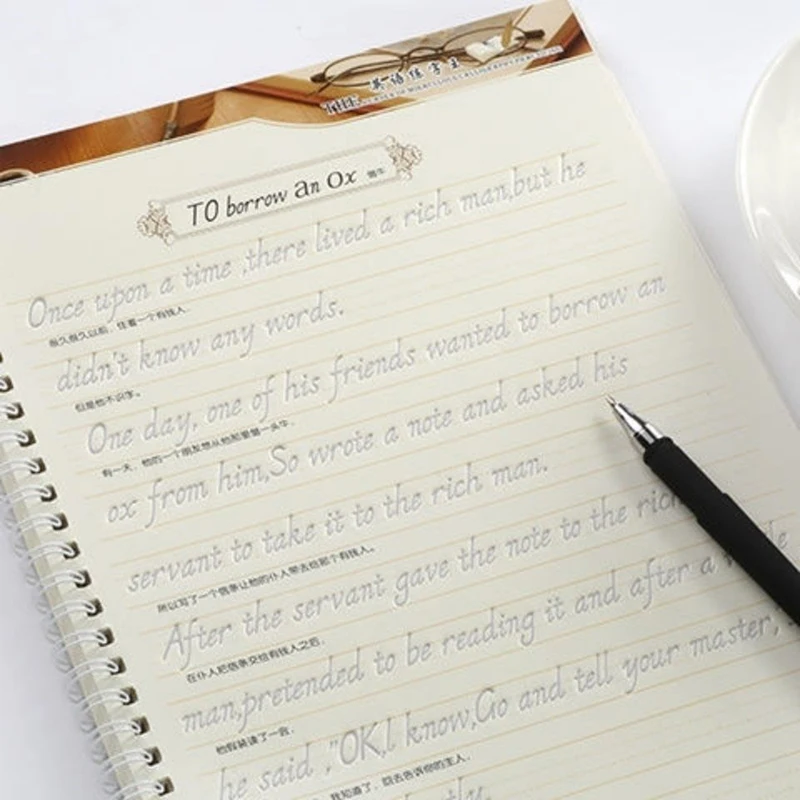 英语练字王
TO borrow an Ox 借牛
Once upon a time ,there lived a rich man,but he
很久很久以前，住着一个有钱人。
didn't know any words.
但是他不识字。
One day, one of his friends wanted to borrow an
有一天，他的一个朋友想从他那里借一头牛。
ox from him,So wrote a note and asked his
servant to take it to the rich man.
所以写了一个信条让他的仆人带去给那个有钱人。
After the servant gave the note to the rich
在仆人把信条交给有钱人之后，
man,pretended to be reading it and after a
他假装读了一会，
he said ,"OK,I know,Go and tell your master,
我知道了，回去告诉你的主人，